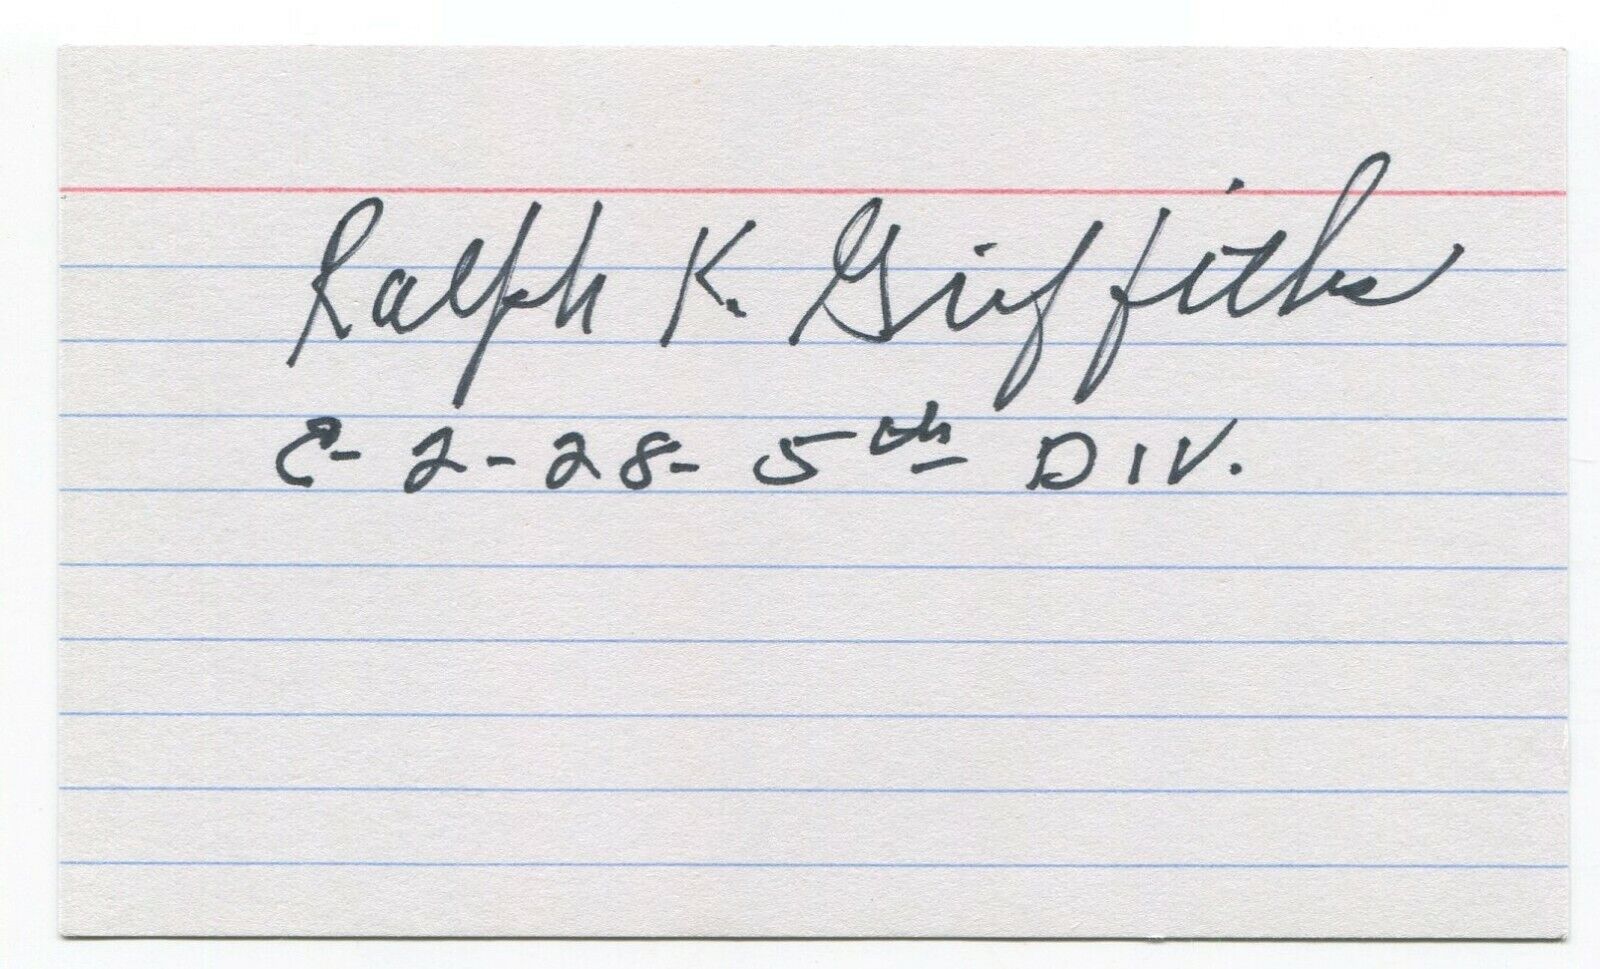 Ralph K. Griffiths
C-2-28-5th DIV.